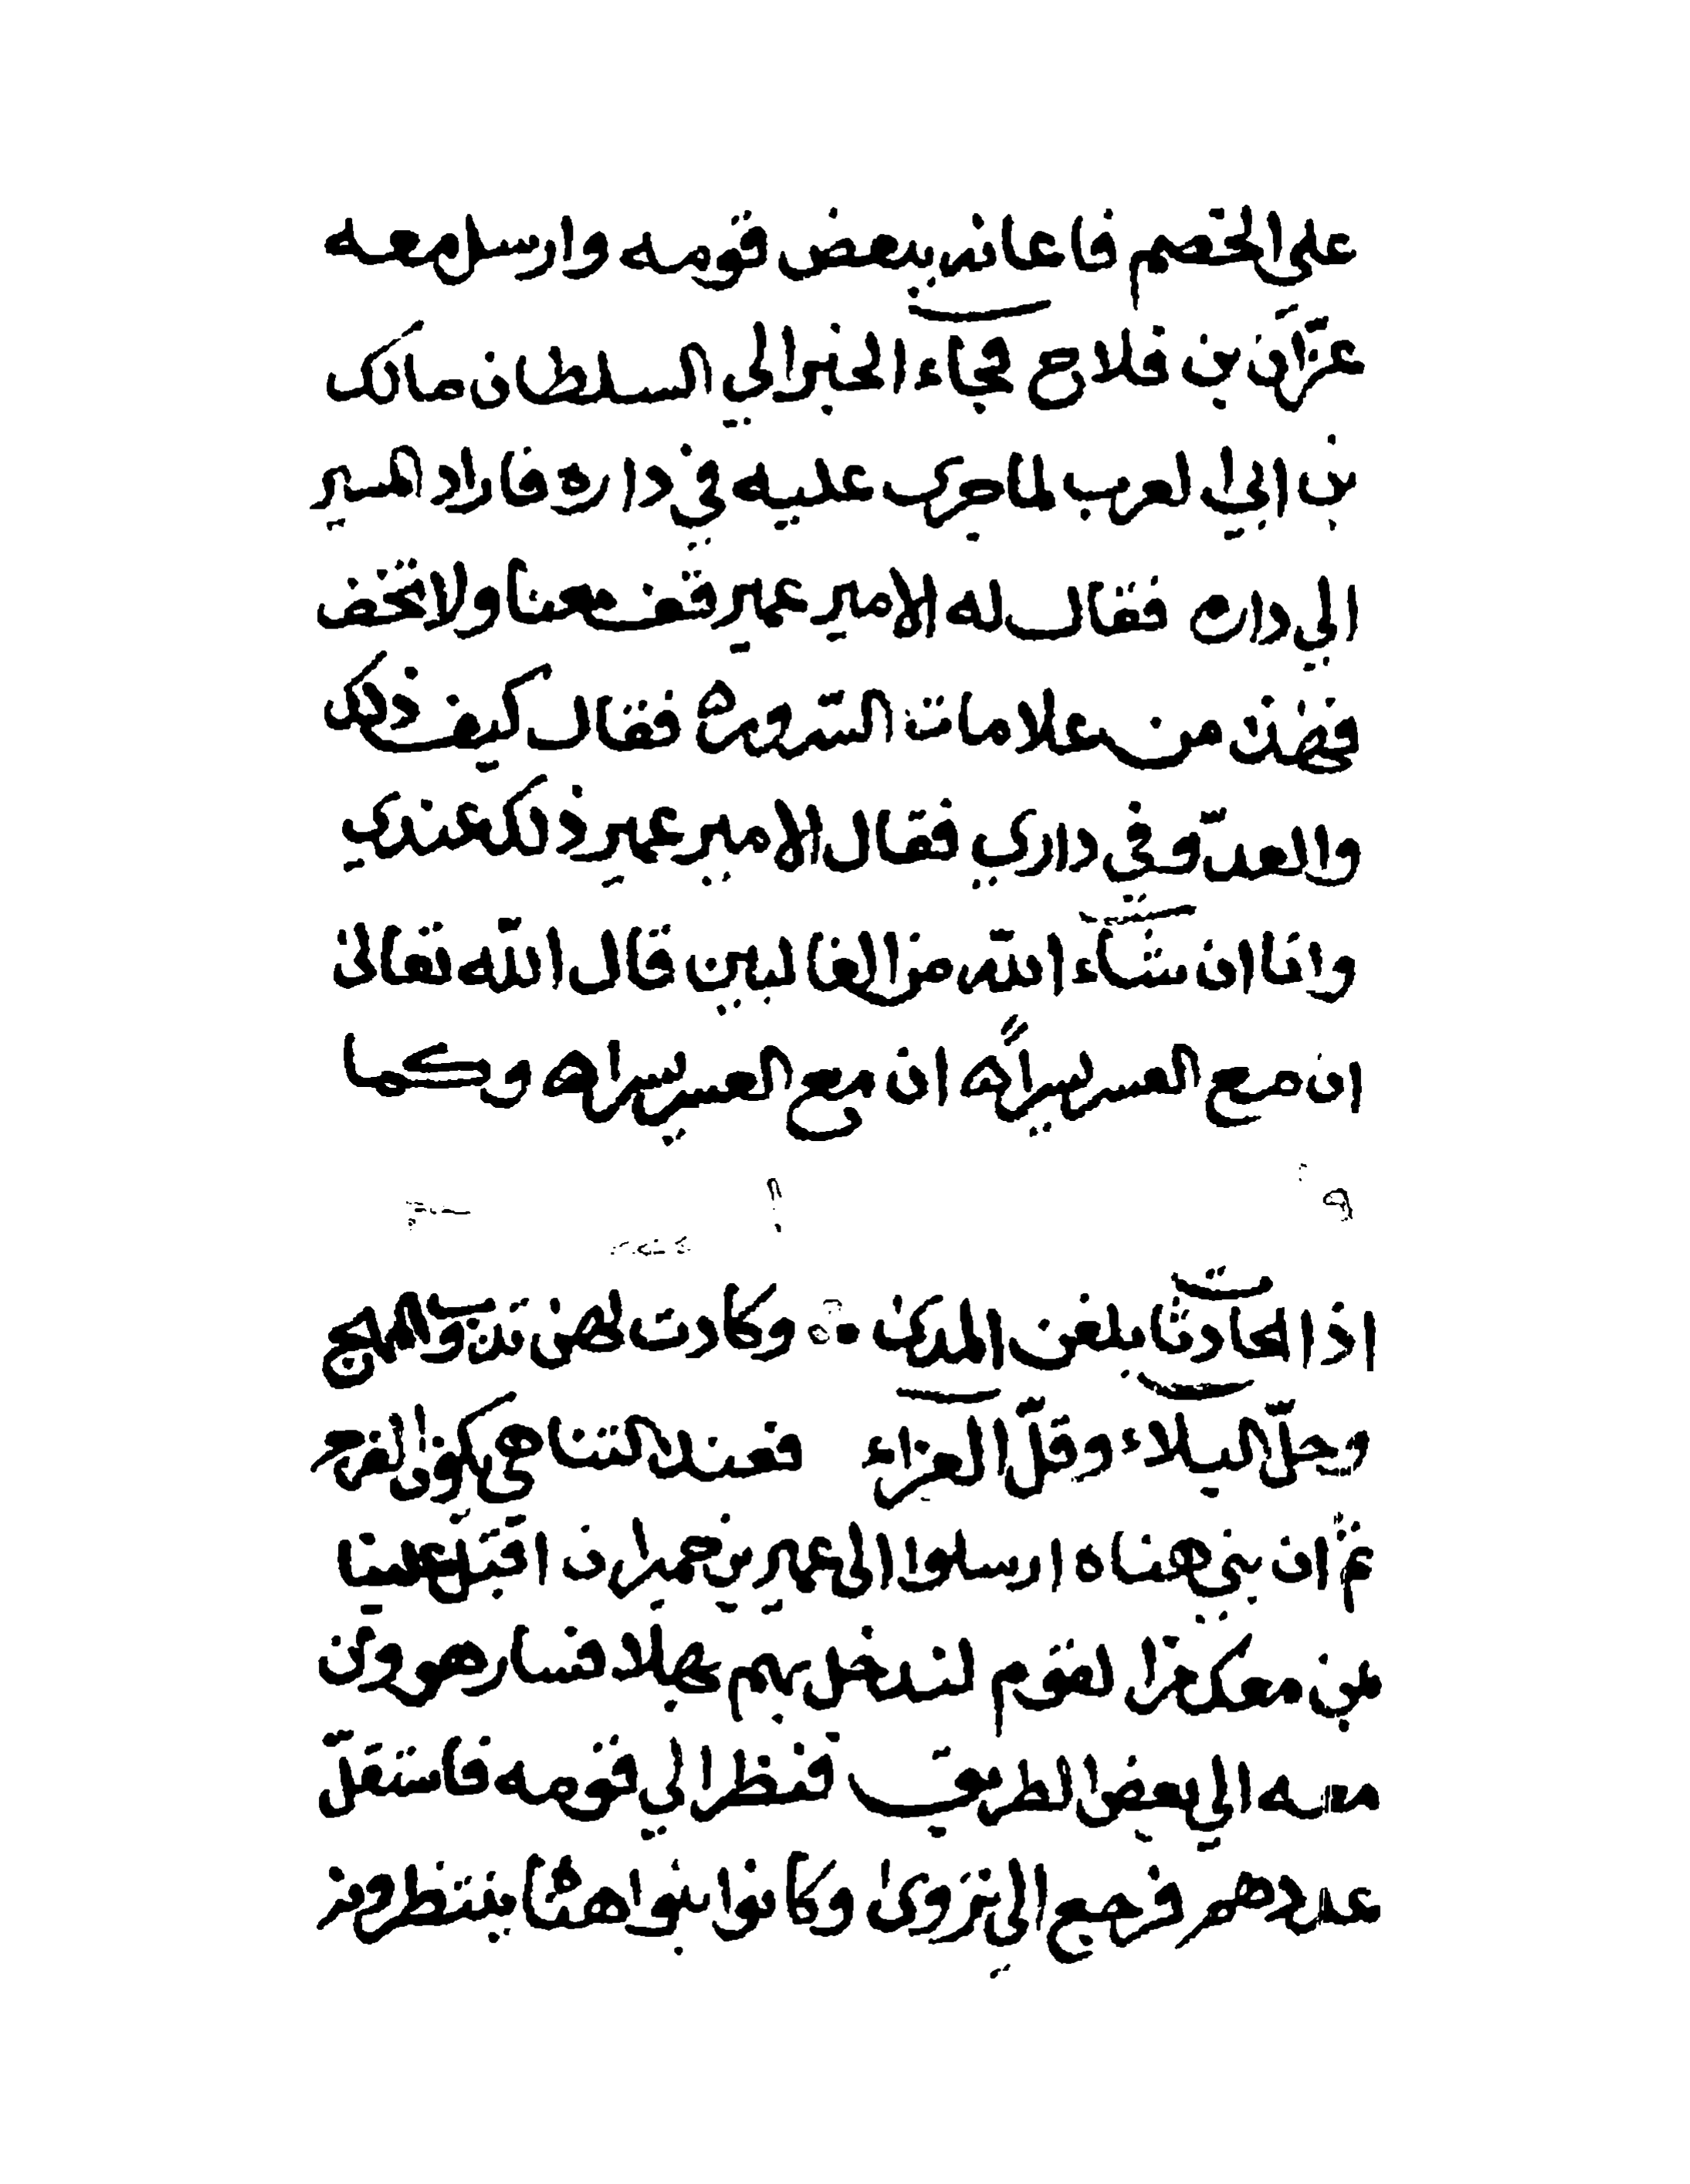 على الخصم فاعانه ببعض قومه وارسل معه
عزّان بن فلاح فجاء الخبر الي السلطان مالك
بن ابي العرب لما جرى عليه في داره فاراد المسير
الي داره فقال له الامير عمير قف معنا ولا تخف
فهذن من علامات السرور ه فقال كيف ذلك
والعدّو في داري فقال الامير عمير ذلك عندي
وانا ان شاء الله من الغالبين قال الله تعالى
ان مع العسر يسراً ه ان مع العسر يسرا ه وكما
اذا الحادثات بلغن المدى وكادت لهن تذوب المهج
وحلّ البلاء وقلّ العزاء فعند التناهي يكون الفرج
ثم ان بني هناه ارسلوا الى عمير بن حمير ان اقبل علينا
بمن معك من القوم لندخل بهم بهلا فسار هو ومن
معه الي بعض الطريق فنظر الي قومه فاستقلّ
عددهم فرجع الي نزوى وكانوا بنوا هنا ينتظرون